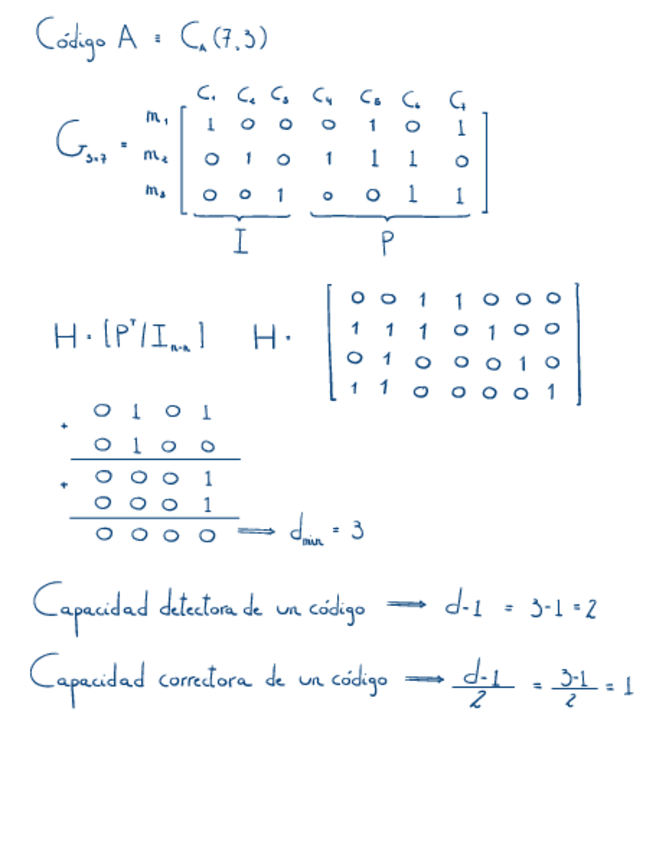 Código A = C_A (7,3)
C₁ C₂ C₃ C₄ C₅ C₆ C₇
m₁ 1 0 0 0 1 0 1
G₃ₓ₇ = m₂ 0 1 0 1 1 1 0
m₃ 0 0 1 0 0 1 1
I P
0 0 1 1 0 0 0
H = [Pᵀ/Iₙ₋ₖ] H = 1 1 1 0 1 0 0
0 1 0 0 0 1 0
1 1 0 0 0 0 1
+ 0 1 0 1
0 1 0 0
+ 0 0 0 1
0 0 0 1
0 0 0 0 ⟹ d_min = 3
Capacidad detectora de un código ⟹ d-1 = 3-1 = 2
Capacidad correctora de un código ⟹ d-1/2 = 3-1/2 = 1